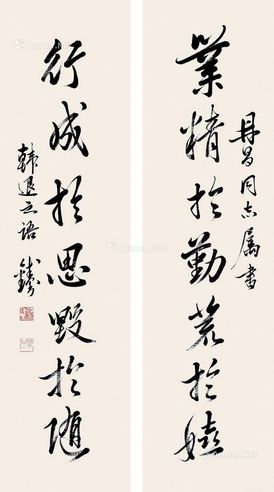 昌同志属書
業精於勤荒於嬉
行成於思毀於隨
韓退之語